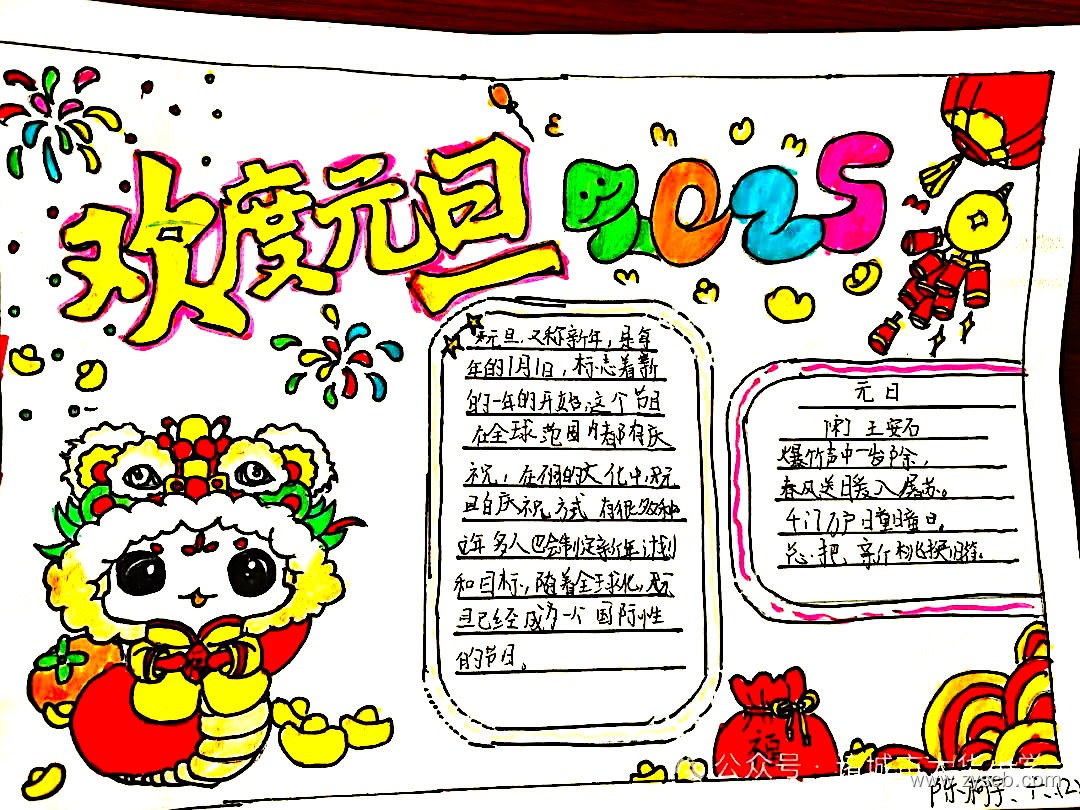 欢度元旦 2025
元旦,又称新年,是每
年的1月1日,标志着新
的一年的开始,这个节日
在全球范围内都有庆
祝,在不同的文化中,元
旦的庆祝方式有很多种
许多人也会制定新年计划
和目标,随着全球化,元
旦已经成为一个国际性
的节日。
元日
王安石
爆竹声中一岁除,
春风送暖入屠苏。
千门万户曈曈日。
总把新桃换旧符。
福
公众号·诸城市大华
www.zyseb.com
六.(2)